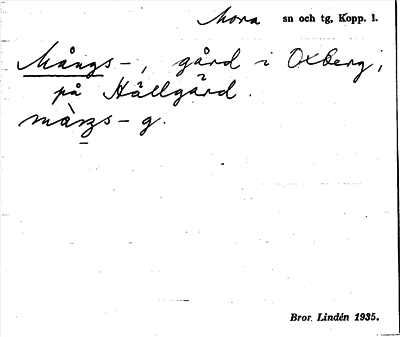 Mora sn och tg, Kopp. l.
Mångs-, gård i Oxberg;
på Hållgård.
màŋs- g.
Bror. Lindén 1935.